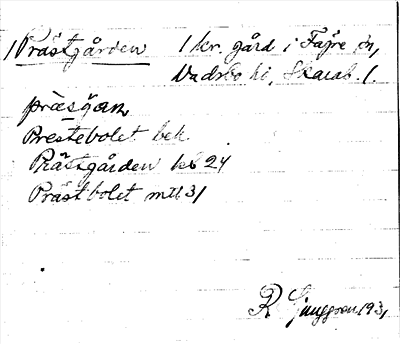 1 Prästgården 1 kr. gård i Fägre sn,
Vadsbo hd, Skarab. l.
præsgan
Prestebolet bek.
Prästgården kb 24
Prästbolet mtl 31
R Ljunggren 1931